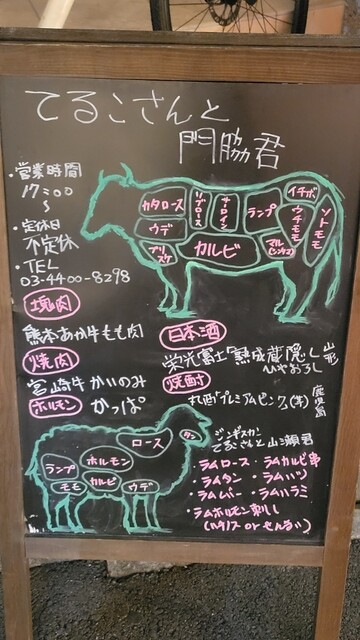 てるこさんと
門脇君
・営業時間
17:00
〜
・定休日
不定休
・TEL
03-4400-8298
カタロース
リブロース
サーロイン
ランプ
イチボ
ソトモモ
ウチモモ
ウデ
ブリスケ
カルビ
マル
(シンタマ)
塊肉
熊本あか牛もも肉
焼肉
宮崎牛かいのみ
ホルモン
かっぱ
日本酒
栄光冨士「熟成蔵隠し
山形
ひやおろし
焼酎
鹿児島
ロース
タン
ランプ
ホルモン
モモ
カルビ
ウデ
ジンギスカン
てるこさんと山瀬君
・ラムロース・ラムカルビ串
・ラムタン・ラムハツ
・ラムレバー・ラムハラミ
・ラムホルモン刺し
(ハチノス or せんまい)